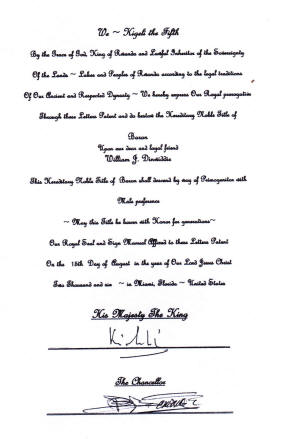 We ~ Kigeli the Fifth
By the Grace of God, King of Rwanda and Lawful Inheritor of the Sovereignty
Of the Lands ~ Lakes and Peoples of Rwanda according to the legal traditions
Of Our Ancient and Respected Dynasty ~ We hereby express Our Royal prerogative
Through these Letters Patent and do bestow the Hereditary Noble Title of
Baron
Upon our dear and loyal friend
William J. Dinwiddie
This Hereditary Noble Title of Baron shall descend by way of Primogenitor with
Male preference
~ May this Title be borne with Honor for generations~
Our Royal Seal and Sign Manual Affixed to these Letters Patent
On the 15th Day of August in the year of Our Lord Jesus Christ
Two Thousand and six ~ in Miami, Florida ~ United States
His Majesty The King
Kigeli
The Chancellor